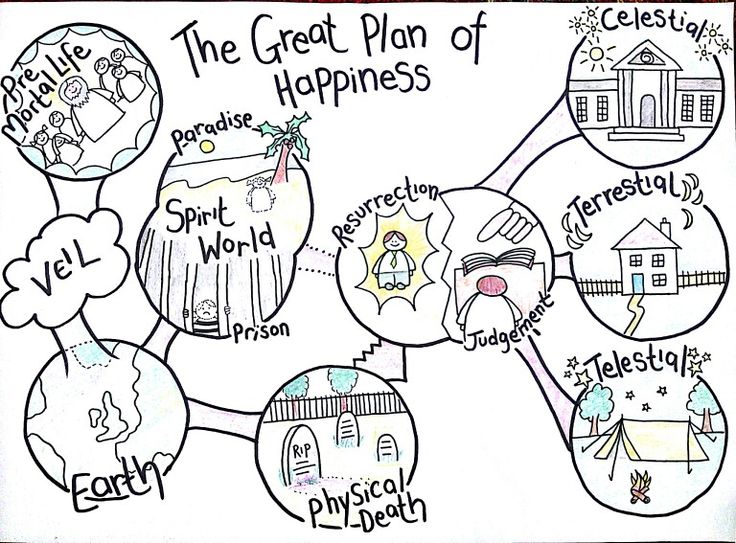 The Great Plan of
Happiness
Pre
Mortal Life
Veil
Earth
Paradise
Spirit
World
Prison
RIP
Physical
Death
Resurrection
Judgement
Celestial
Terrestial
Telestial